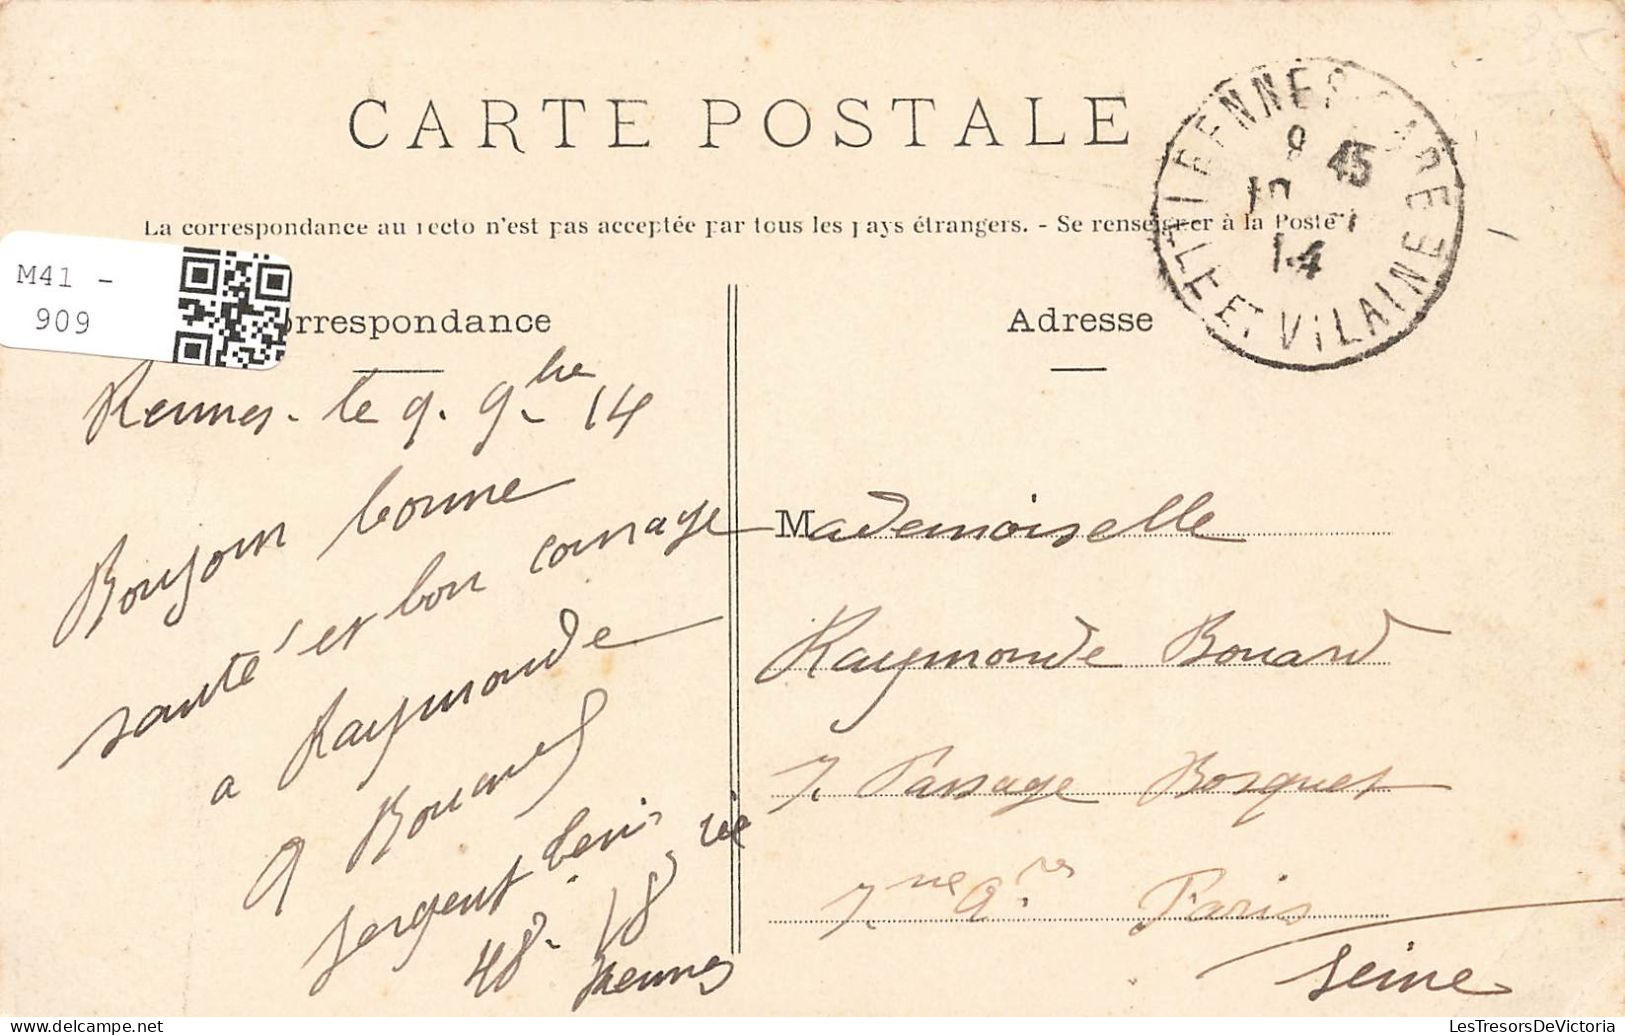 CARTE POSTALE
RENNES GARE
9 45
10
14
ILLE ET VILAINE
La correspondance au recto n'est pas acceptée par tous les pays étrangers. - Se renseigner à la Poste
M41 -
909
orrespondance
Rennes. le 9. 9bre 14
Bonjour bonne
santé et bon courage
a Raymonde
A Bouard
sergent
48. 18
Rennes
Adresse
Mademoiselle
Raymonde Bouard
7. Passage Bosquet
7me Ar. Paris
Seine
LesTresorsDeVictoria